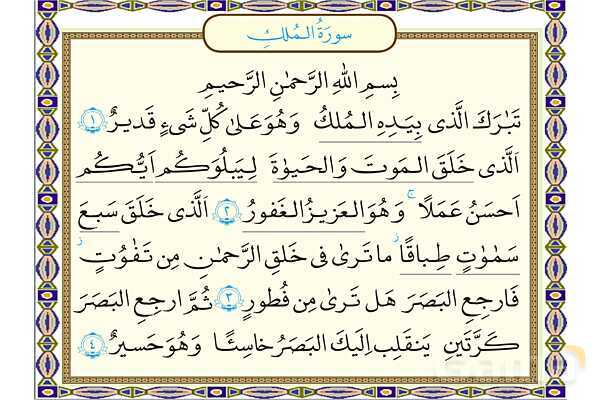 سورَةُ المُلكِ
بِسمِ اللهِ الرَّحمٰنِ الرَّحيمِ
تَبٰرَكَ الَّذی بِيَدِهِ المُلكُ وَهُوَ عَلیٰ كُلِّ شَیءٍ قَديرٌ ١
اَلَّذی خَلَقَ المَوتَ وَالحَيوٰةَ لِيَبلُوَكُم اَيُّكُم
اَحسَنُ عَمَلًا ۚ وَهُوَ العَزيزُ الغَفورُ ٢ اَلَّذی خَلَقَ سَبعَ
سَمٰوٰتٍ طِباقًا ما تَریٰ فی خَلقِ الرَّحمٰنِ مِن تَفٰوُتٍ
فَارجِعِ البَصَرَ هَل تَریٰ مِن فُطورٍ ٣ ثُمَّ ارجِعِ البَصَرَ
كَرَّتَينِ يَنقَلِب اِلَيكَ البَصَرُ خاسِئًا وَهُوَ حَسيرٌ ٤